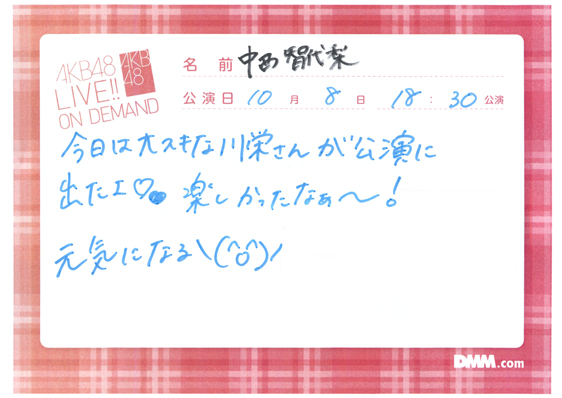 AKB48
LIVE!!
ON DEMAND
AKB
48
名 前 中西智代梨
公演日 10 月 8 日 18 : 30 公演
今日は大スキな川栄さんが公演に
出たエ♡♥ 楽しかったなぁ〜!
元気になる\(^o^)/
DMM.com